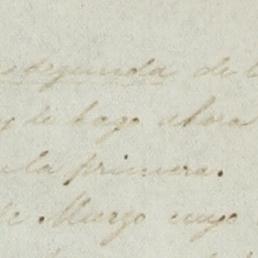 segunda de l
y lo hago ahora
n la primera.
de Marzo cuyo